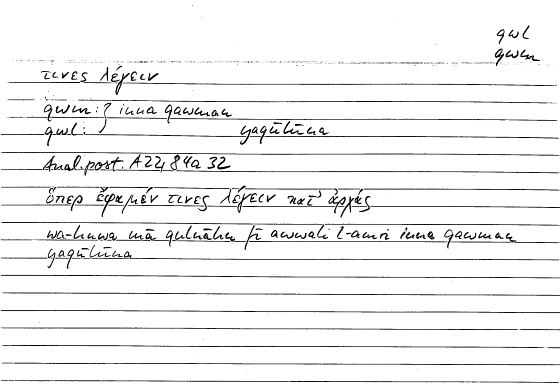 qwl
qwm
τινες λέγειν
qwm: } inna qawman
qwl: } yaqūlūna
Anal. post. A 22, 84a 32
ὅπερ ἔφαμέν τινες λέγειν κατ' ἀρχάς
wa-huwa mā qulnāhu fī awwali l-amri inna qawman
yaqūlūna